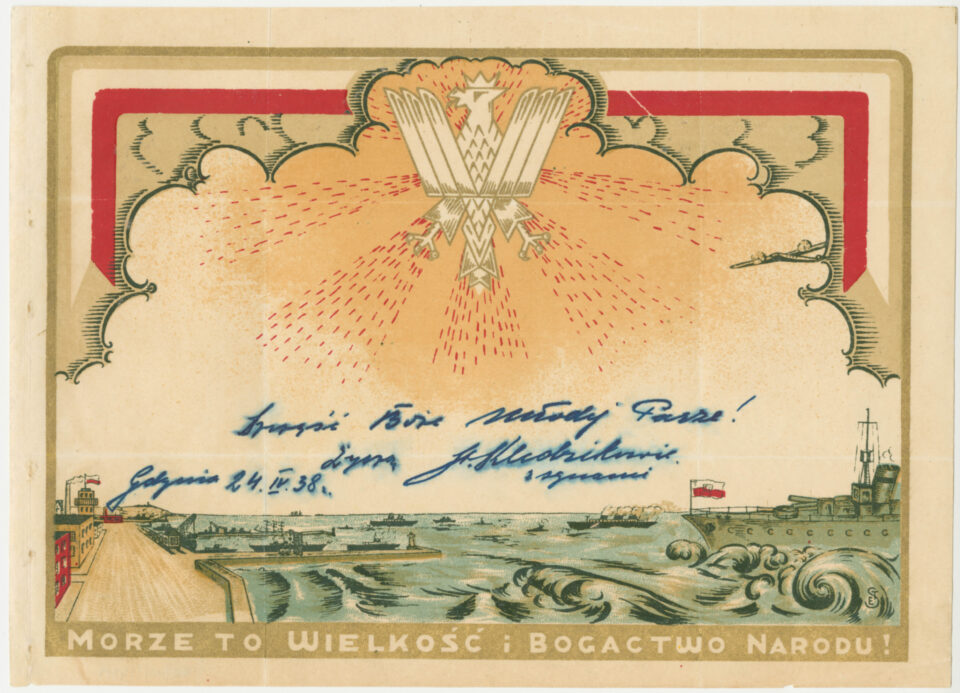 Szczęść Boże Młodej Parze!
Życzą St. Kledzikowie
z synami
Gdynia 24.IV.38.
MORZE TO WIELKOŚĆ i BOGACTWO NARODU!